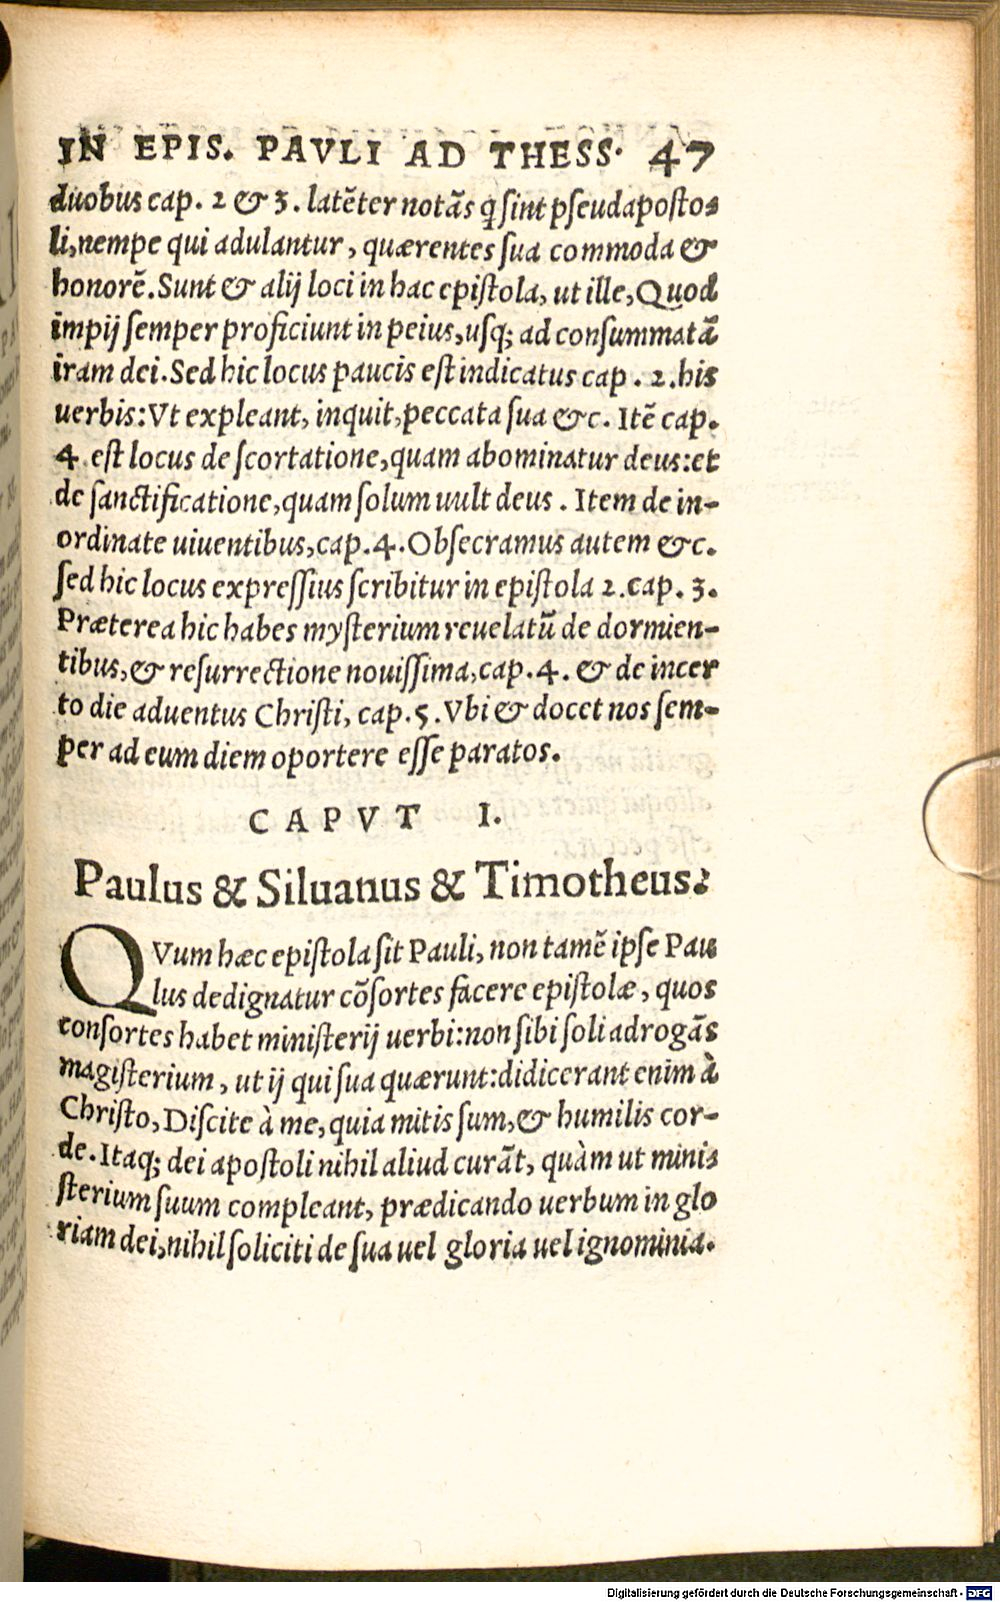 IN EPIS. PAVLI AD THESS. 47
duobus cap. 2 & 3. latẽter notãs q̃ sint pseudaposto-
li, nempe qui adulantur, quærentes sua commoda &
honorẽ. Sunt & alij loci in hac epistola, ut ille, Quod
impij semper proficiunt in peius, usq; ad consummatã
iram dei. Sed hic locus paucis est indicatus cap. 2. his
uerbis: Vt expleant, inquit, peccata sua &c. Itẽ cap.
4. est locus de scortatione, quam abominatur deus: et
de sanctificatione, quam solum uult deus. Item de in-
ordinate uiuentibus, cap. 4. Obsecramus autem &c.
sed hic locus expressius scribitur in epistola 2. cap. 3.
Præterea hic habes mysterium reuelatũ de dormien-
tibus, & resurrectione nouissima, cap. 4. & de incer
to die aduentus Christi, cap. 5. Vbi & docet nos sem-
per ad eum diem oportere esse paratos.
CAPVT I.
Paulus & Siluanus & Timotheus:
QVum hæc epistola sit Pauli, non tamẽ ipse Pau
lus dedignatur cõsortes facere epistolæ, quos
consortes habet ministerij uerbi: non sibi soli adrogãs
magisterium, ut ij qui sua quærunt: didicerant enim à
Christo, Discite à me, quia mitis sum, & humilis cor-
de. Itaq; dei apostoli nihil aliud curãt, quàm ut mini-
sterium suum compleant, prædicando uerbum in glo
riam dei, nihil soliciti de sua uel gloria uel ignominia.
Digitalisierung gefördert durch die Deutsche Forschungsgemeinschaft - DFG